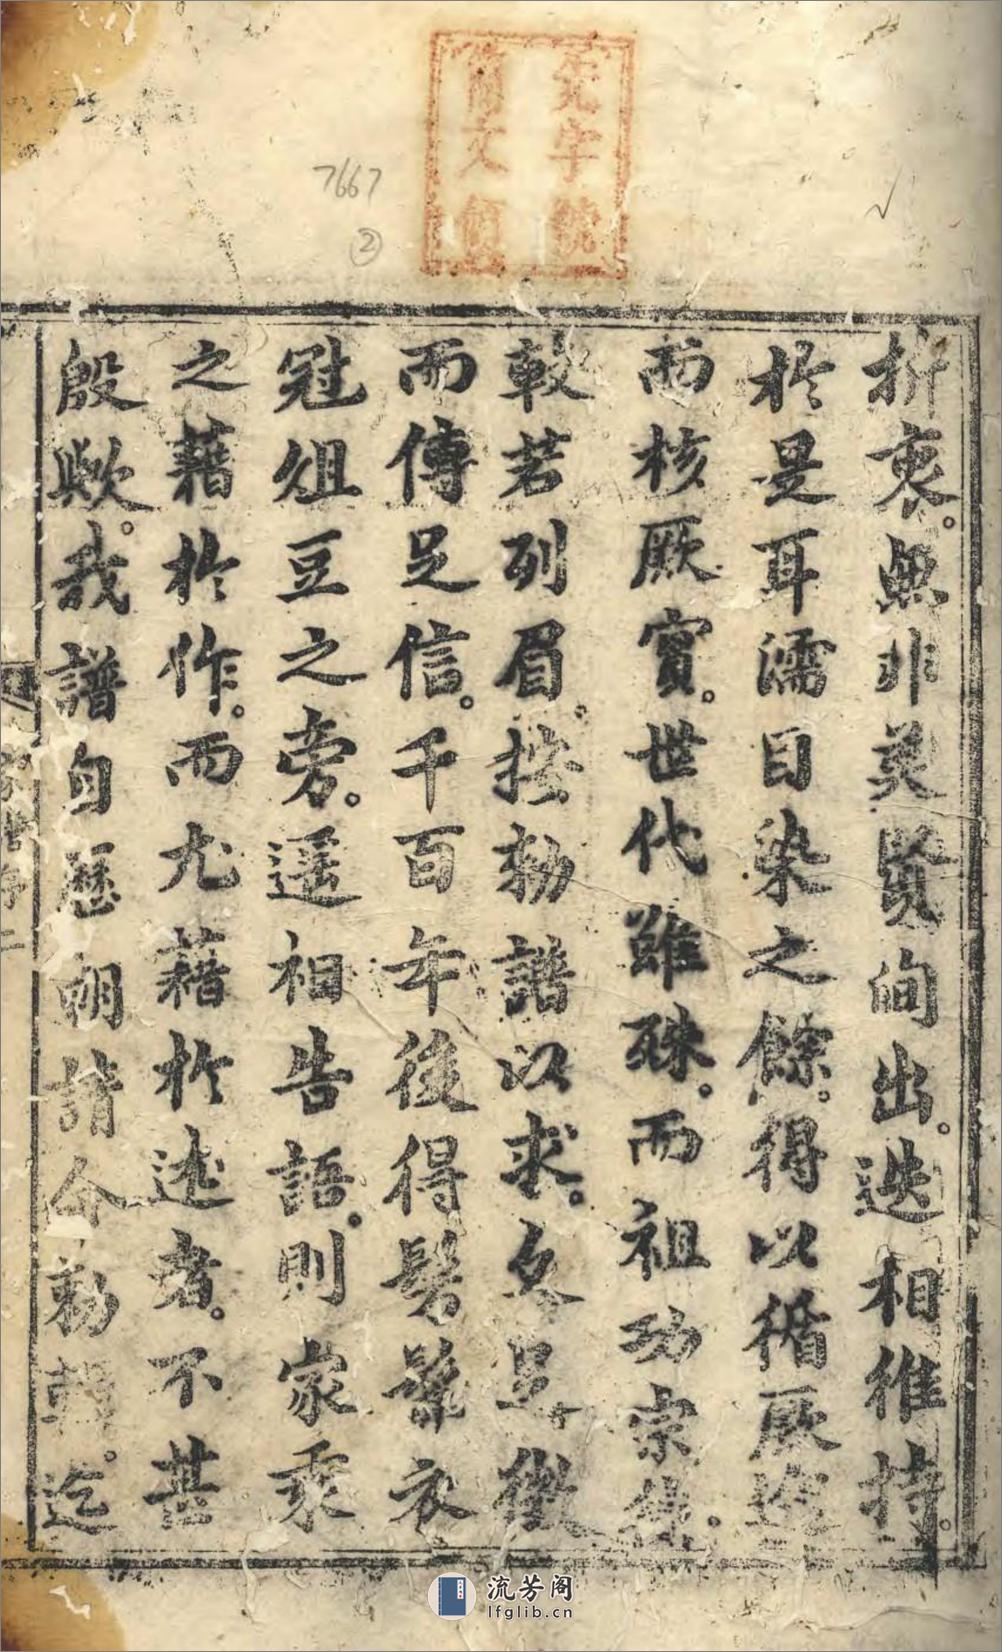 7667
②
折衷。無非英賢間出。迭相維持。
於是耳濡目染之餘。得以循厥
而核厥實。世代雖殊。而祖功宗
較若列眉。按勅譜以求。久足徵
而傳足信。千百年後得髣髴衣
冠俎豆之旁。遥相告語。則家乘
之藉於作。而尤藉於述者。不甚
殷歟。我譜自歷朝請命勅。迄
流芳阁
lfglib.cn